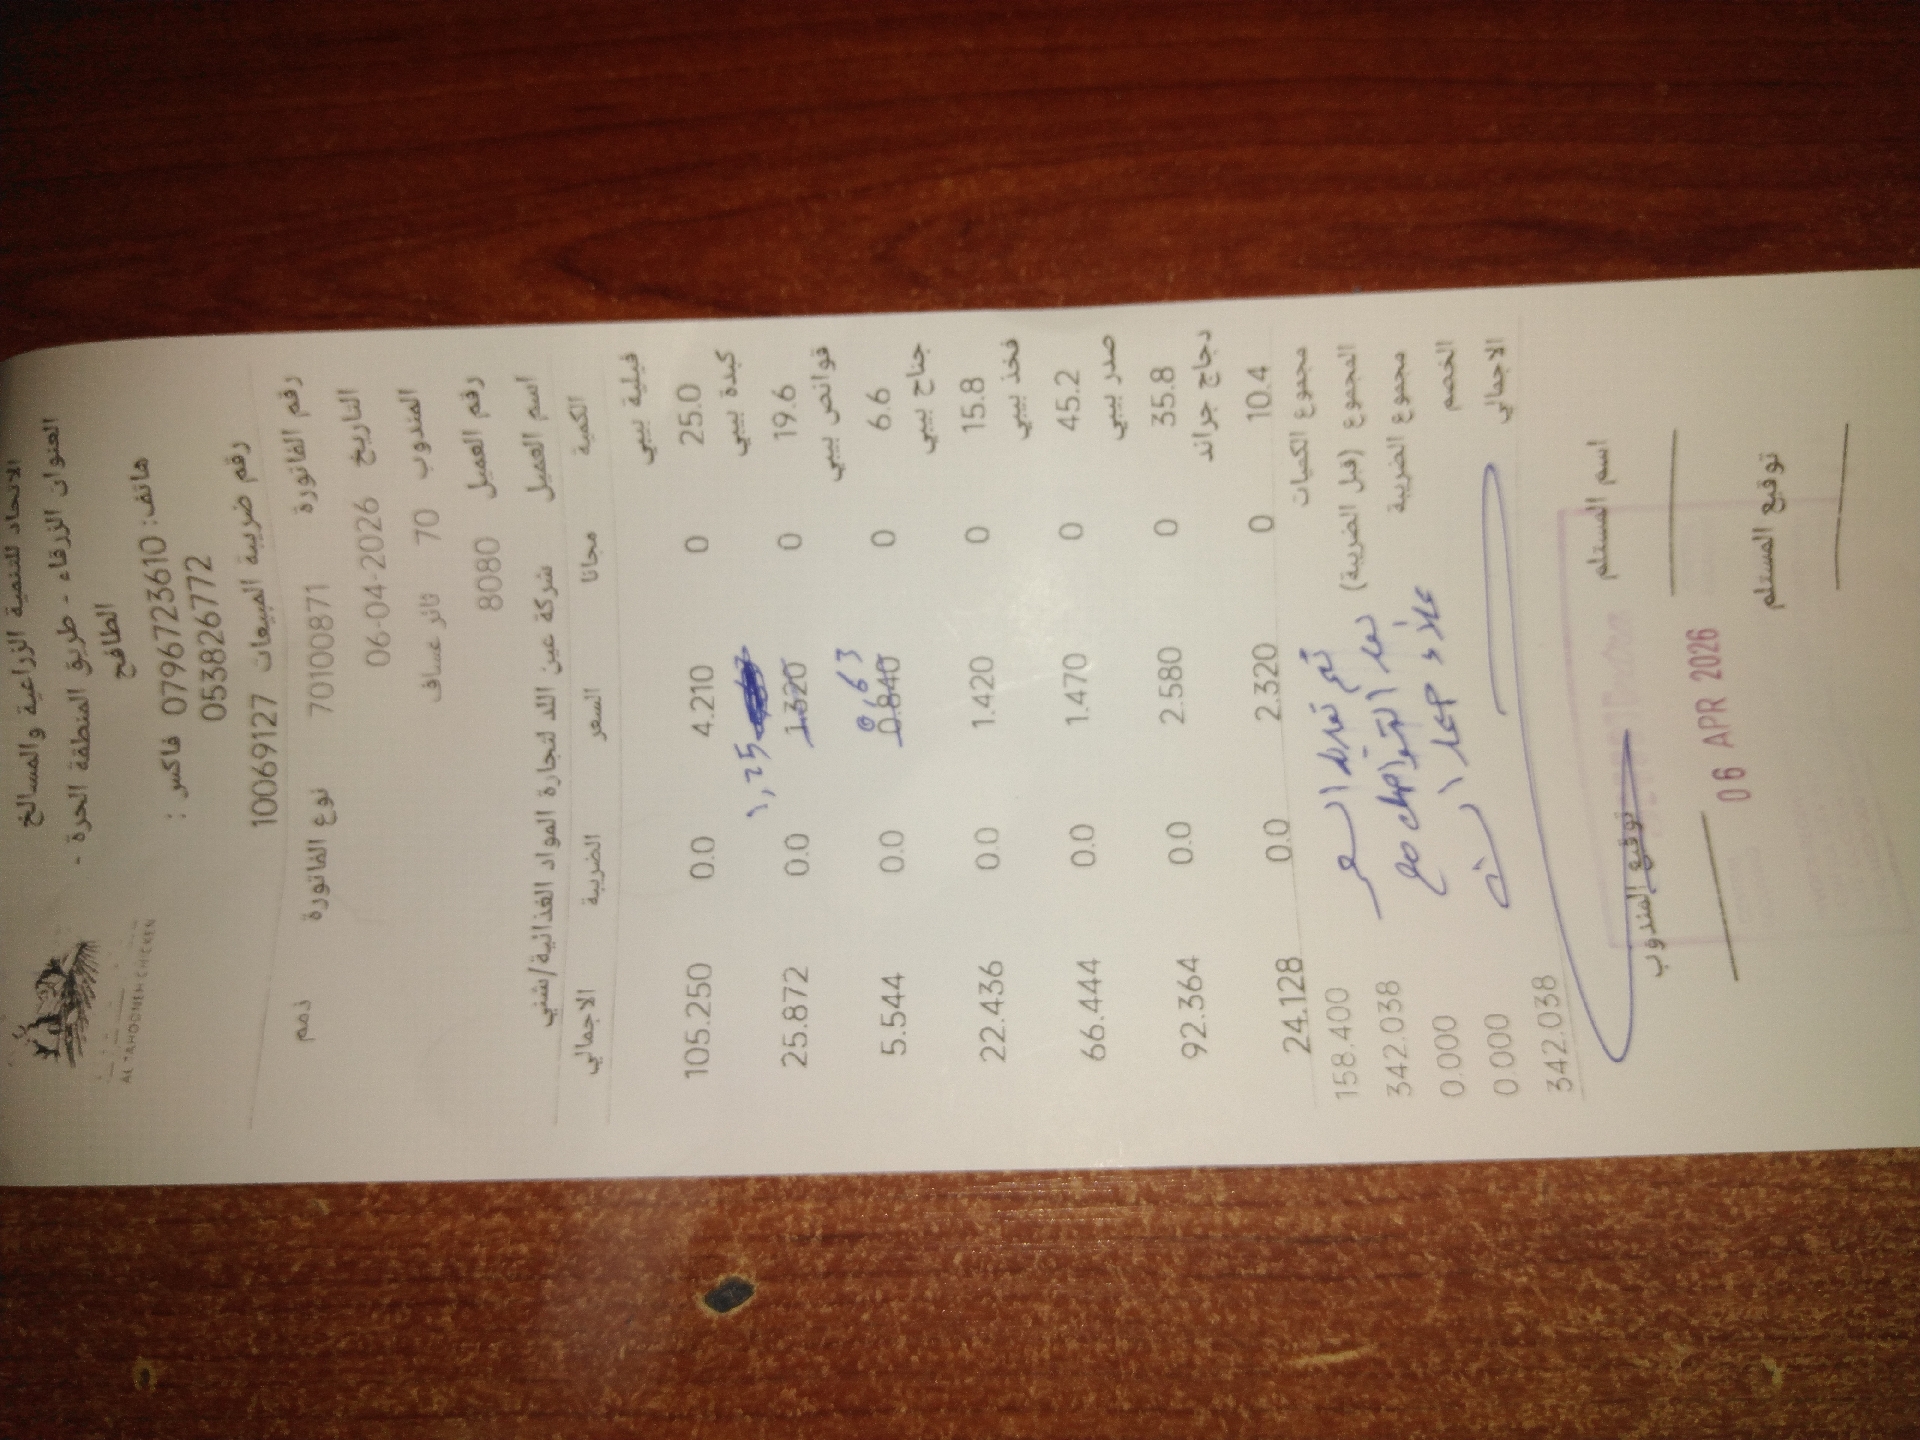 الاتحاد للتنمية الزراعية والمسالخ
العنوان الزرقاء - طريق المنطقة الحرة -
الطافح
هاتف: 0796723610 فاكس :
053826772
رقم ضريبة المبيعات 10069127
AL TAHOONEH CHICKEN
رقم الفاتورة 70100871 نوع الفاتورة ذمم
التاريخ 06-04-2026
المندوب 70 ثائر عساف
رقم العميل 8080
اسم العميل شركة عين اللد لتجارة المواد الغذائية/شني
الكمية مجانا السعر الضريبة الاجمالي
فيلية بيبي
25.0 0 4.210 0.0 105.250
كبدة بيبي
1,25
19.6 0 1.320 0.0 25.872
قوانص بيبي
0,63
6.6 0 0.840 0.0 5.544
جناح بيبي
15.8 0 1.420 0.0 22.436
فخذ بيبي
45.2 0 1.470 0.0 66.444
صدر بيبي
35.8 0 2.580 0.0 92.364
دجاج جراند
10.4 0 2.320 0.0 24.128
مجموع الكميات 158.400
المجموع (قبل الضريبة) 342.038
مجموع الضريبة 0.000
الخصم 0.000
الاجمالي 342.038
تم تعديل السعر
بعد التواصل مع
اسم المستلم
توقيع المندوب
06 APR 2026
توقيع المستلم